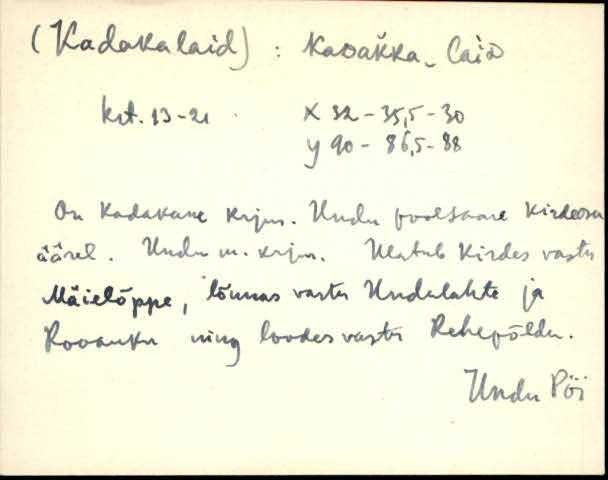 (Kadakalaid) : kaðàkka_laið
krt. 13-21 X 32 - 35,5 - 30
y 90 - 86,5 - 88
On kadakane krjm. Undu poolsaare kirdeosa
äärel. Undu m. krjm. Ulatub kirdes vastu
Mäielõppe, lõunas vastu Undulahte ja
ning loodes vastu Rehepõldu.
Undu Pöi